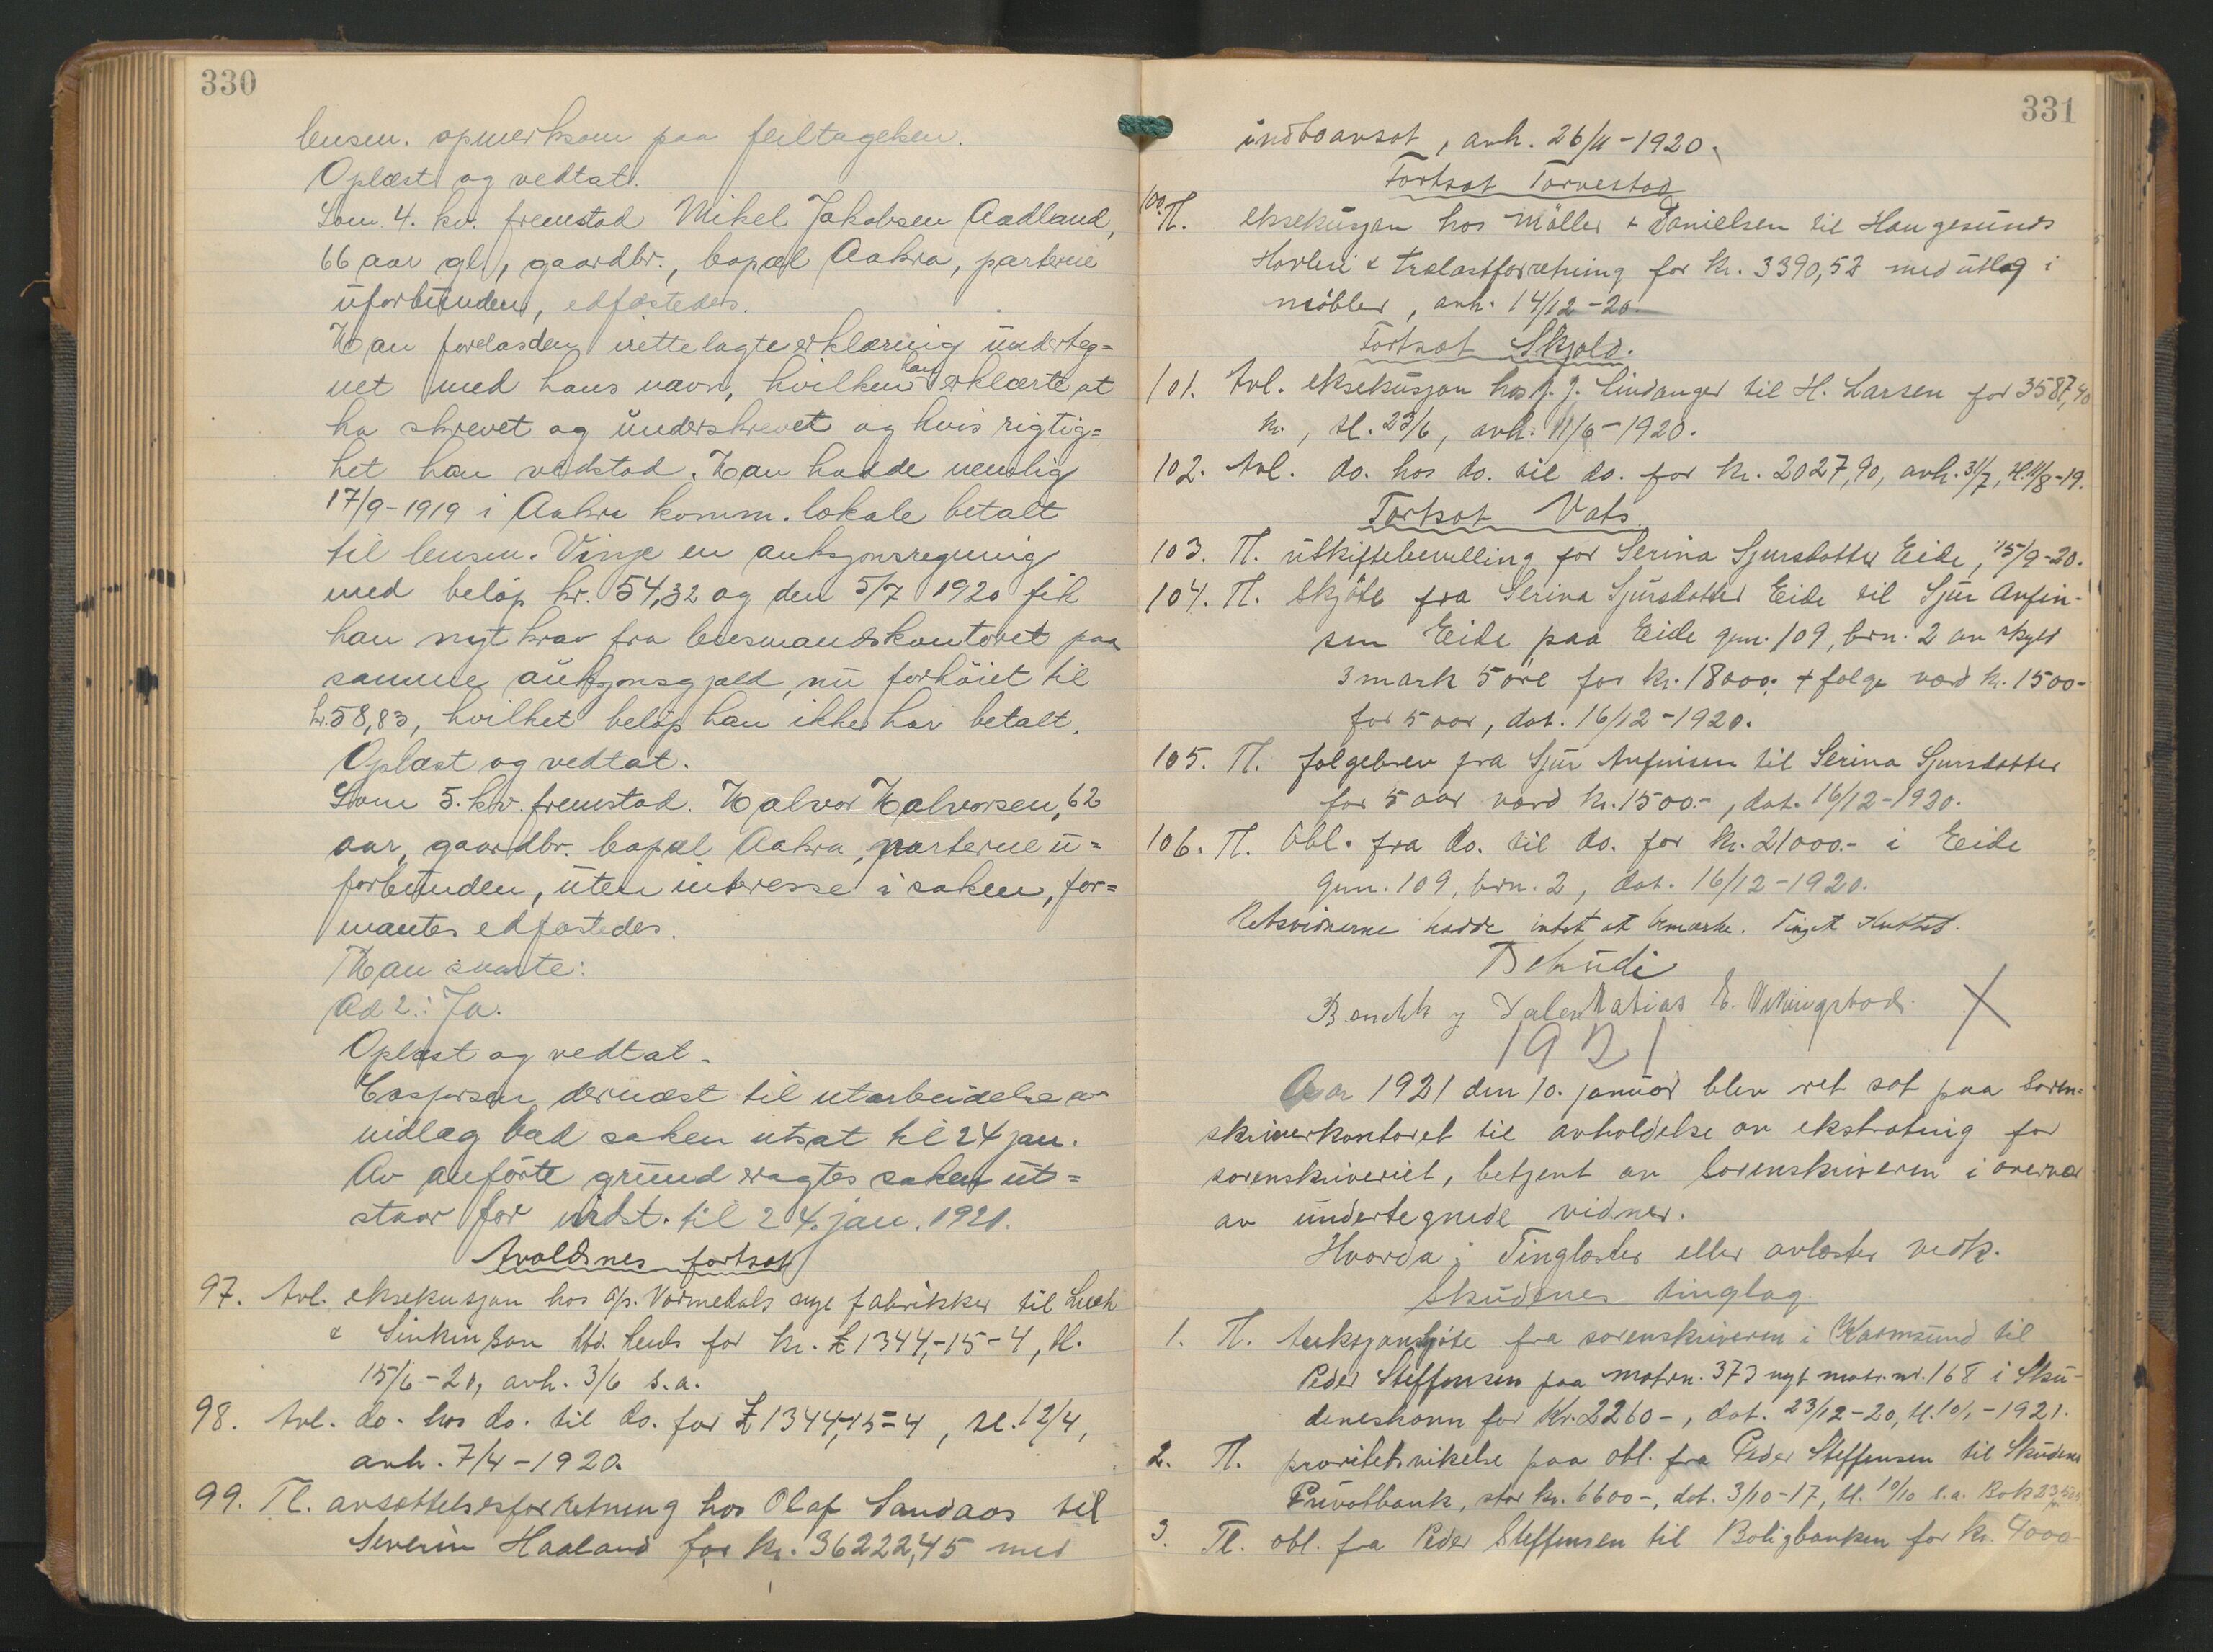 330
lensm. opmerksom paa feiltagelsen.
Oplæst og vedtat.
Som 4. kv. fremstod Mikel Jakobsen Aadland,
66 aar gl., gaardbr., bopæl Aakra, parterne
uforbunden, edfæstedes.
Han forelæsden irettelagte erklæring underteg=
net med hans navn, hvilken han erklærte at
ha skrevet og underskrevet og hvis rigtig=
het han vedstod. Han hadde nemlig
17/9-1919 i Aakra komm. lokale betalt
til lensm. Vinje en auksjonsregning
med beløp kr. 54,32 og den 5/7 1920 fik
han nyt krav fra lensmandskontoret paa
samme auksjonsgjæld, nu forhöiet til
kr. 58,83, hvilket beløp han ikke har betalt.
Oplæst og vedtat.
Som 5. kv. fremstod. Halvor Halvorsen, 62
aar, gaardbr. bopæl Aakra, parterne u=
forbunden, uten interesse i saken, for=
mantes edfæstedes.
Han svarte:
Ad 2: Ja.
Oplæst og vedtat.
Caspersen dernæst til utarbeidelse av
indlæg bad saken utsat til 24 jan.
Av anförte grund vagtes saken ut=
staar for indst. til 24. jan. 1921.
Avaldsnes fortsat
97. Avl. eksekusjon hos A/s. Vormedals nye fabrikker til Luck
& Sinkinson ltd. Leeds for kr. £ 1344,-15-4, tl.
15/6-20, avh. 3/6 s.a.
98. Avl. do. hos do. til do. for £ 1344,-15=4, tl. 12/4,
avh. 7/4-1920.
99. Tl. avsættelsesforretning hos Olaf Sandaas til
Severin Haaland for kr. 36222,45 med
331
indboavsæt, avh. 26/11-1920.
Fortsat Torvestad
100. Tl. eksekusjon hos Möller & Danielsen til Haugesunds
Hövleri & trælastforretning for kr. 3390,52 med utlæg i
möbler, avh. 14/12-20.
Fortsat Skjold.
101. Avl. eksekusjon hos J. J. Lindanger til H. Larsen for 3587,40
kr., tl. 23/6, avh. 11/6-1920.
102. Avl. do. hos do. til do. for kr. 2027,90, avh. 31/7, tl. 11/8-19.
Fortsat Vats
103. Tl. utskiftebevilling for Serina Sjursdotter Eide, 15/9-20.
104. Tl. Skjöte fra Serina Sjursdotter Eide til Sjur Anfin-
sen Eide paa Eide gnr. 109, brn. 2 av skyld
3 mark 5 öre for kr. 18000,- + folge værd kr. 1500-
for 5 aar, dat. 16/12-1920.
105. Tl. folgebrev fra Sjur Anfinsen til Serina Sjursdotter
for 5 aar værd kr. 1500.-, dat. 16/12-1920.
106. Tl. Obl. fra do. til do. for kr. 21000.- i Eide
gnr. 109, brn. 2, dat. 16/12-1920.
Retsvidnerne hadde intet at bemærke. Tinget sluttet.
Behudi
Bendik J Dalen Matias E. Vikingstad.
1921
Aar 1921 den 10. januar blev ret sat paa Soren=
skriverkontoret til avholdelse av ekstrating for
sorenskriveriet, betjent av Sorenskriveren i overvær
av undertegnede vidner.
Hvorda: Tinglæstes eller avlæstes vedk.
Skudenes tinglag.
1. Tl. Auksjonsskjöte fra sorenskriveren i Karmsund til
Peder Steffensen paa matrn. 373 nyt matr. nr. 168 i Sku-
deneshavn for Kr. 2260-, dat. 23/12-20, tl. 10/1-1921.
2. Tl. prioritetsvikelse paa obl. fra Peder Steffensen til Skudenes
Privatbank, stor kr. 6600-, dat. 3/10-17, tl. 10/10 s.a. Bok 23
3. Tl. obl. fra Peder Steffensen til Boligbanken for kr. 9000-